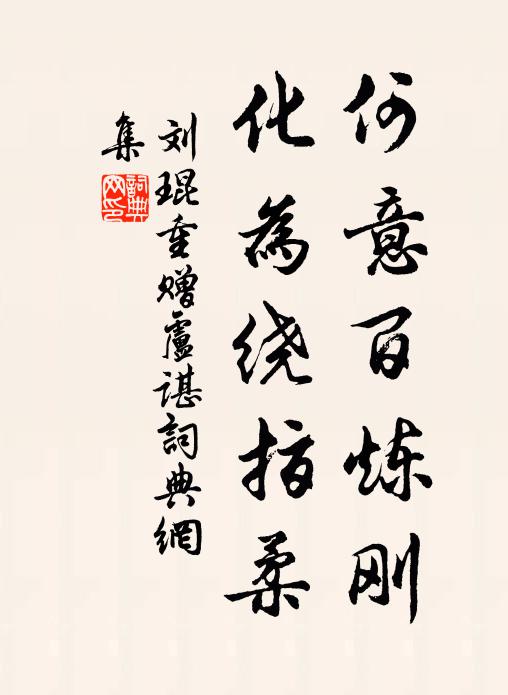 何意百炼刚
化為绕指柔
刘琨重赠盧谌詞典網
集
詞典網印